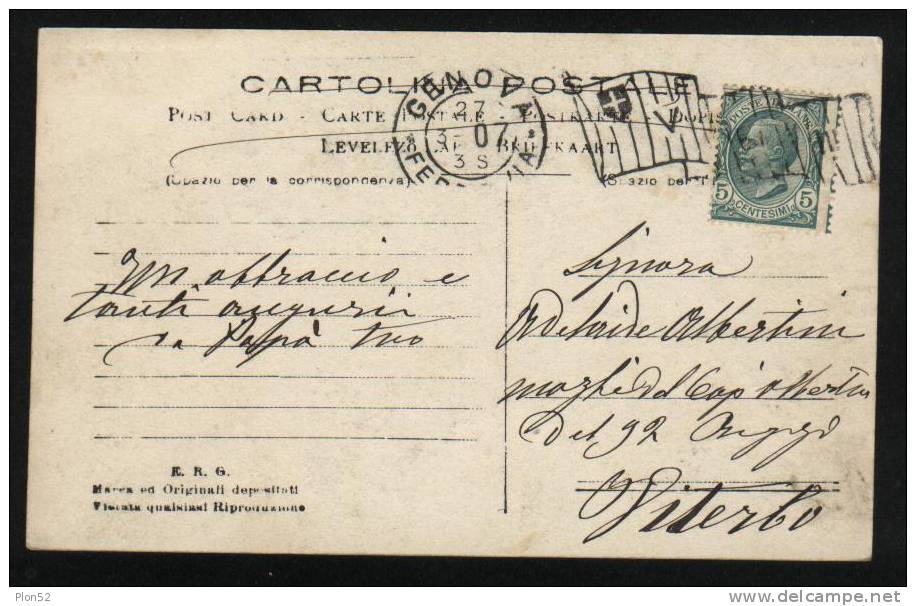 CARTOLINA POSTALE
POST CARD - CARTE POSTALE - POSTKARTE - DOPIS
LEVELEZŐ LAP - BRIEFKAART
(Spazio per la corrispondenza)
(Spazio per
GENOVA
27
3-07
3S
FERROVIA
POSTE ITALIANE
5 5
CENTESIMI
Un abbraccio e
tanti auguri
da Papà tuo
Signora
Adelaide Albertini
moglie del Cap Albertini
del 92
Viterbo
E. R. G.
Marca ed Originali depositati
Vietata qualsiasi Riproduzione
Plon52
delcampe.net